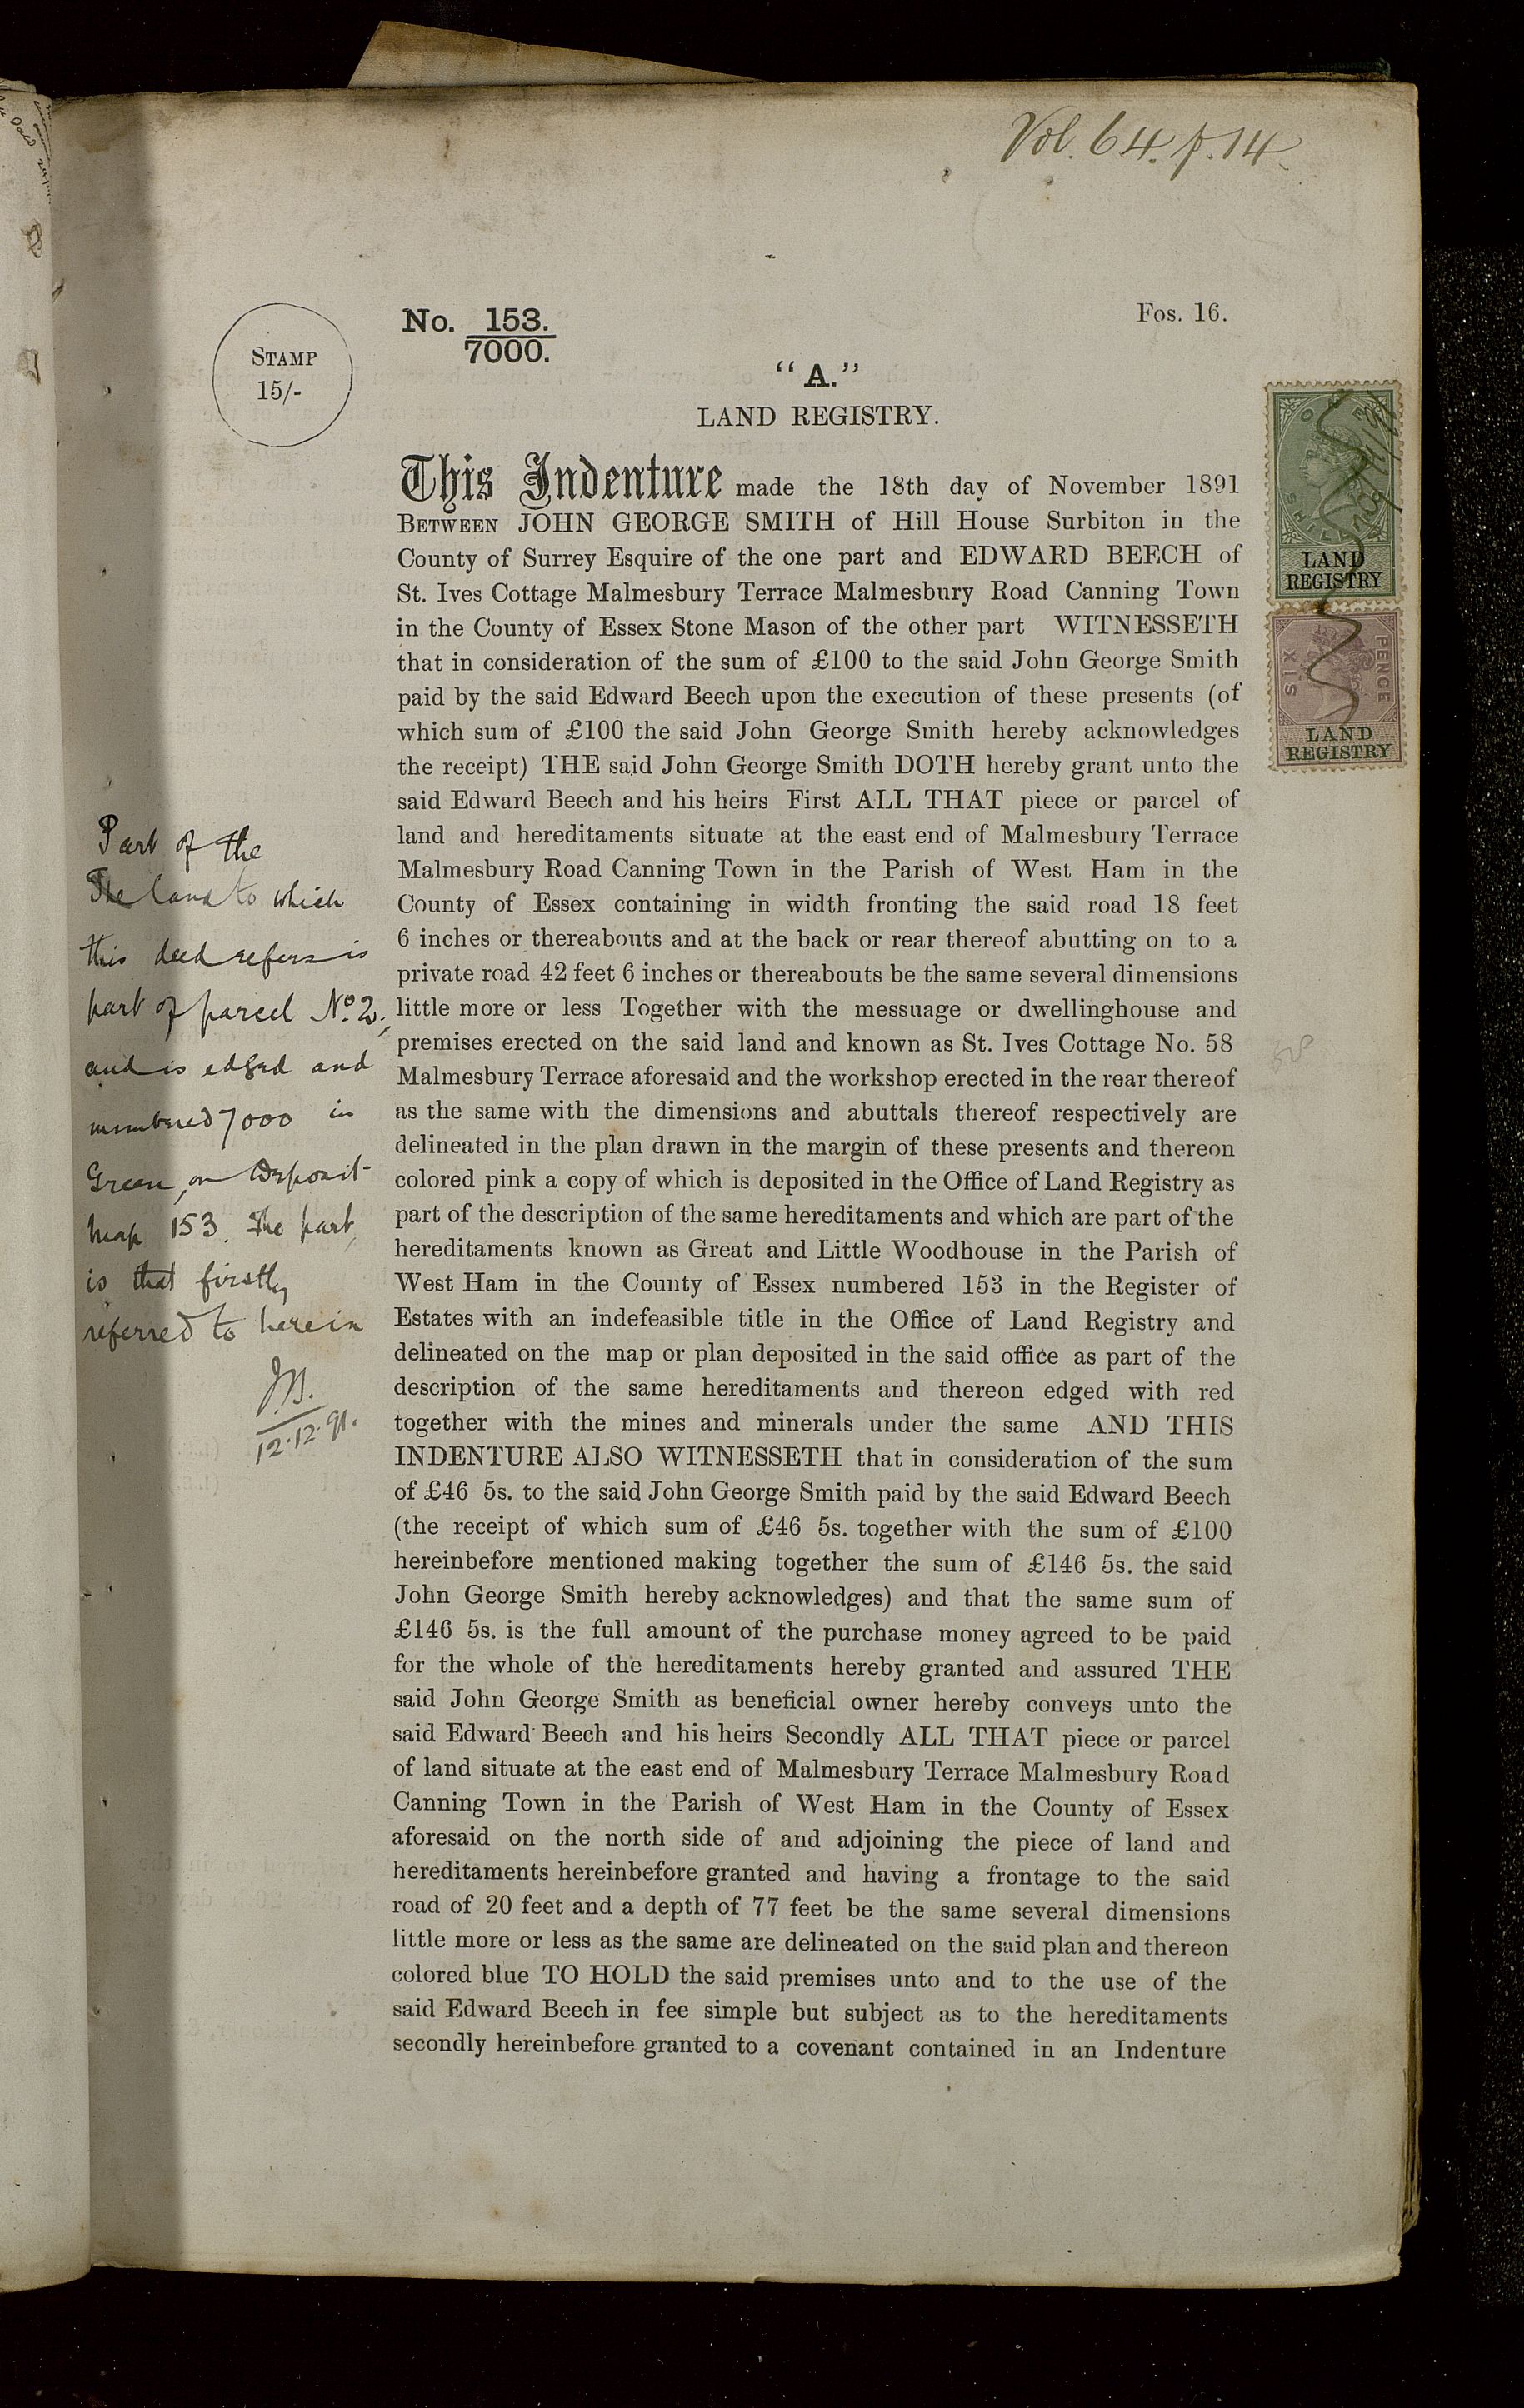 Vol. 64. p. 14
No. 153.
7000.
Fos. 16.
STAMP
15/-
“A.”
LAND REGISTRY.
This Indenture made the 18th day of November 1891
BETWEEN JOHN GEORGE SMITH of Hill House Surbiton in the
County of Surrey Esquire of the one part and EDWARD BEECH of
St. Ives Cottage Malmesbury Terrace Malmesbury Road Canning Town
in the County of Essex Stone Mason of the other part WITNESSETH
that in consideration of the sum of £100 to the said John George Smith
paid by the said Edward Beech upon the execution of these presents (of
which sum of £100 the said John George Smith hereby acknowledges
the receipt) THE said John George Smith DOTH hereby grant unto the
said Edward Beech and his heirs First ALL THAT piece or parcel of
land and hereditaments situate at the east end of Malmesbury Terrace
Malmesbury Road Canning Town in the Parish of West Ham in the
County of Essex containing in width fronting the said road 18 feet
6 inches or thereabouts and at the back or rear thereof abutting on to a
private road 42 feet 6 inches or thereabouts be the same several dimensions
little more or less Together with the messuage or dwellinghouse and
premises erected on the said land and known as St. Ives Cottage No. 58
Malmesbury Terrace aforesaid and the workshop erected in the rear thereof
as the same with the dimensions and abuttals thereof respectively are
delineated in the plan drawn in the margin of these presents and thereon
colored pink a copy of which is deposited in the Office of Land Registry as
part of the description of the same hereditaments and which are part of the
hereditaments known as Great and Little Woodhouse in the Parish of
West Ham in the County of Essex numbered 153 in the Register of
Estates with an indefeasible title in the Office of Land Registry and
delineated on the map or plan deposited in the said office as part of the
description of the same hereditaments and thereon edged with red
together with the mines and minerals under the same AND THIS
INDENTURE ALSO WITNESSETH that in consideration of the sum
of £46 5s. to the said John George Smith paid by the said Edward Beech
(the receipt of which sum of £46 5s. together with the sum of £100
hereinbefore mentioned making together the sum of £146 5s. the said
John George Smith hereby acknowledges) and that the same sum of
£146 5s. is the full amount of the purchase money agreed to be paid
for the whole of the hereditaments hereby granted and assured THE
said John George Smith as beneficial owner hereby conveys unto the
said Edward Beech and his heirs Secondly ALL THAT piece or parcel
of land situate at the east end of Malmesbury Terrace Malmesbury Road
Canning Town in the Parish of West Ham in the County of Essex
aforesaid on the north side of and adjoining the piece of land and
hereditaments hereinbefore granted and having a frontage to the said
road of 20 feet and a depth of 77 feet be the same several dimensions
little more or less as the same are delineated on the said plan and thereon
colored blue TO HOLD the said premises unto and to the use of the
said Edward Beech in fee simple but subject as to the hereditaments
secondly hereinbefore granted to a covenant contained in an Indenture
Part of the
The land to which
this deed refers is
part of parcel No. 2,
and is edged and
numbered 7000 in
Green, on Deposit
Map 153. The part
is that firstly
referred to herein
J.B.
12.12.91.
ONE
SHILLING
LAND
REGISTRY
SIX
PENCE
LAND
REGISTRY